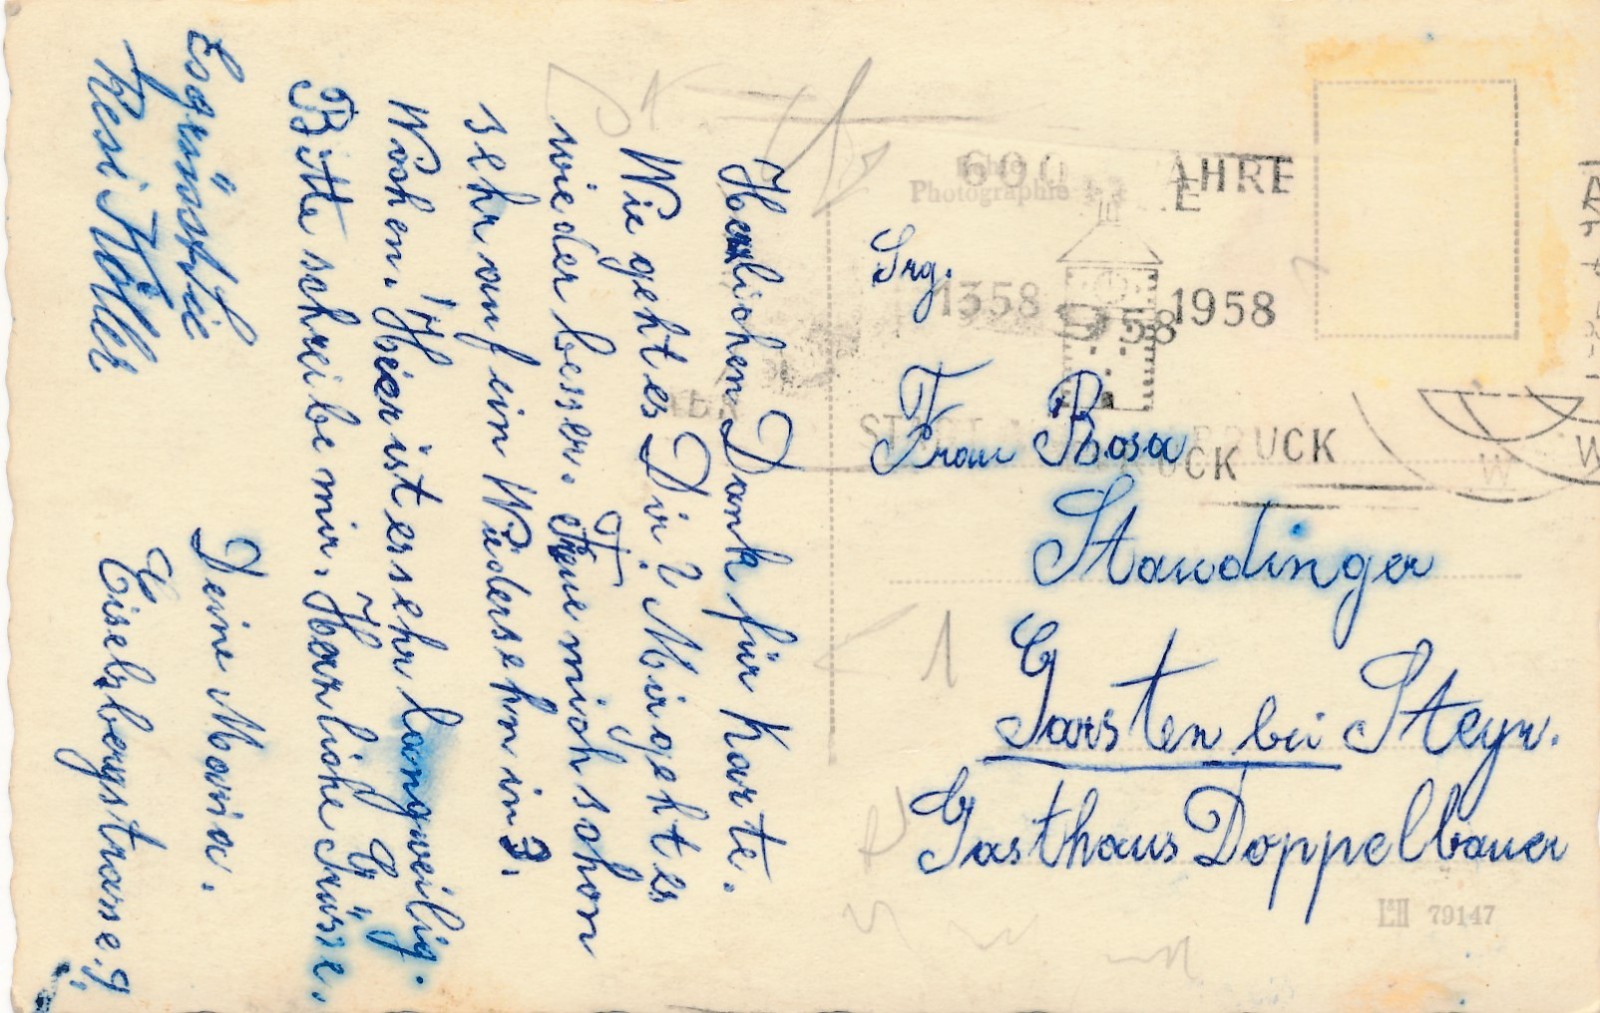 Herzlichen Dank für Karte.
Wie geht es Dir? Mir geht es
wieder besser. Freue mich schon
sehr auf ein Wiedersehn in 3.
Wochen. Hier ist er sehr langweilig.
Bitte schreibe mir. Herzliche Grüsse,
Deine Maria.
Eiselsbergstrasse. 9.
Es grüsst Sie
Resi Köller
Echte
Photographie
600 JAHRE
1358 1958
STADT VÖCKLABRUCK
Srg.
Frau Rosa
Staudinger
Garsten bei Steyr.
Gasthaus Doppelbauer
79147